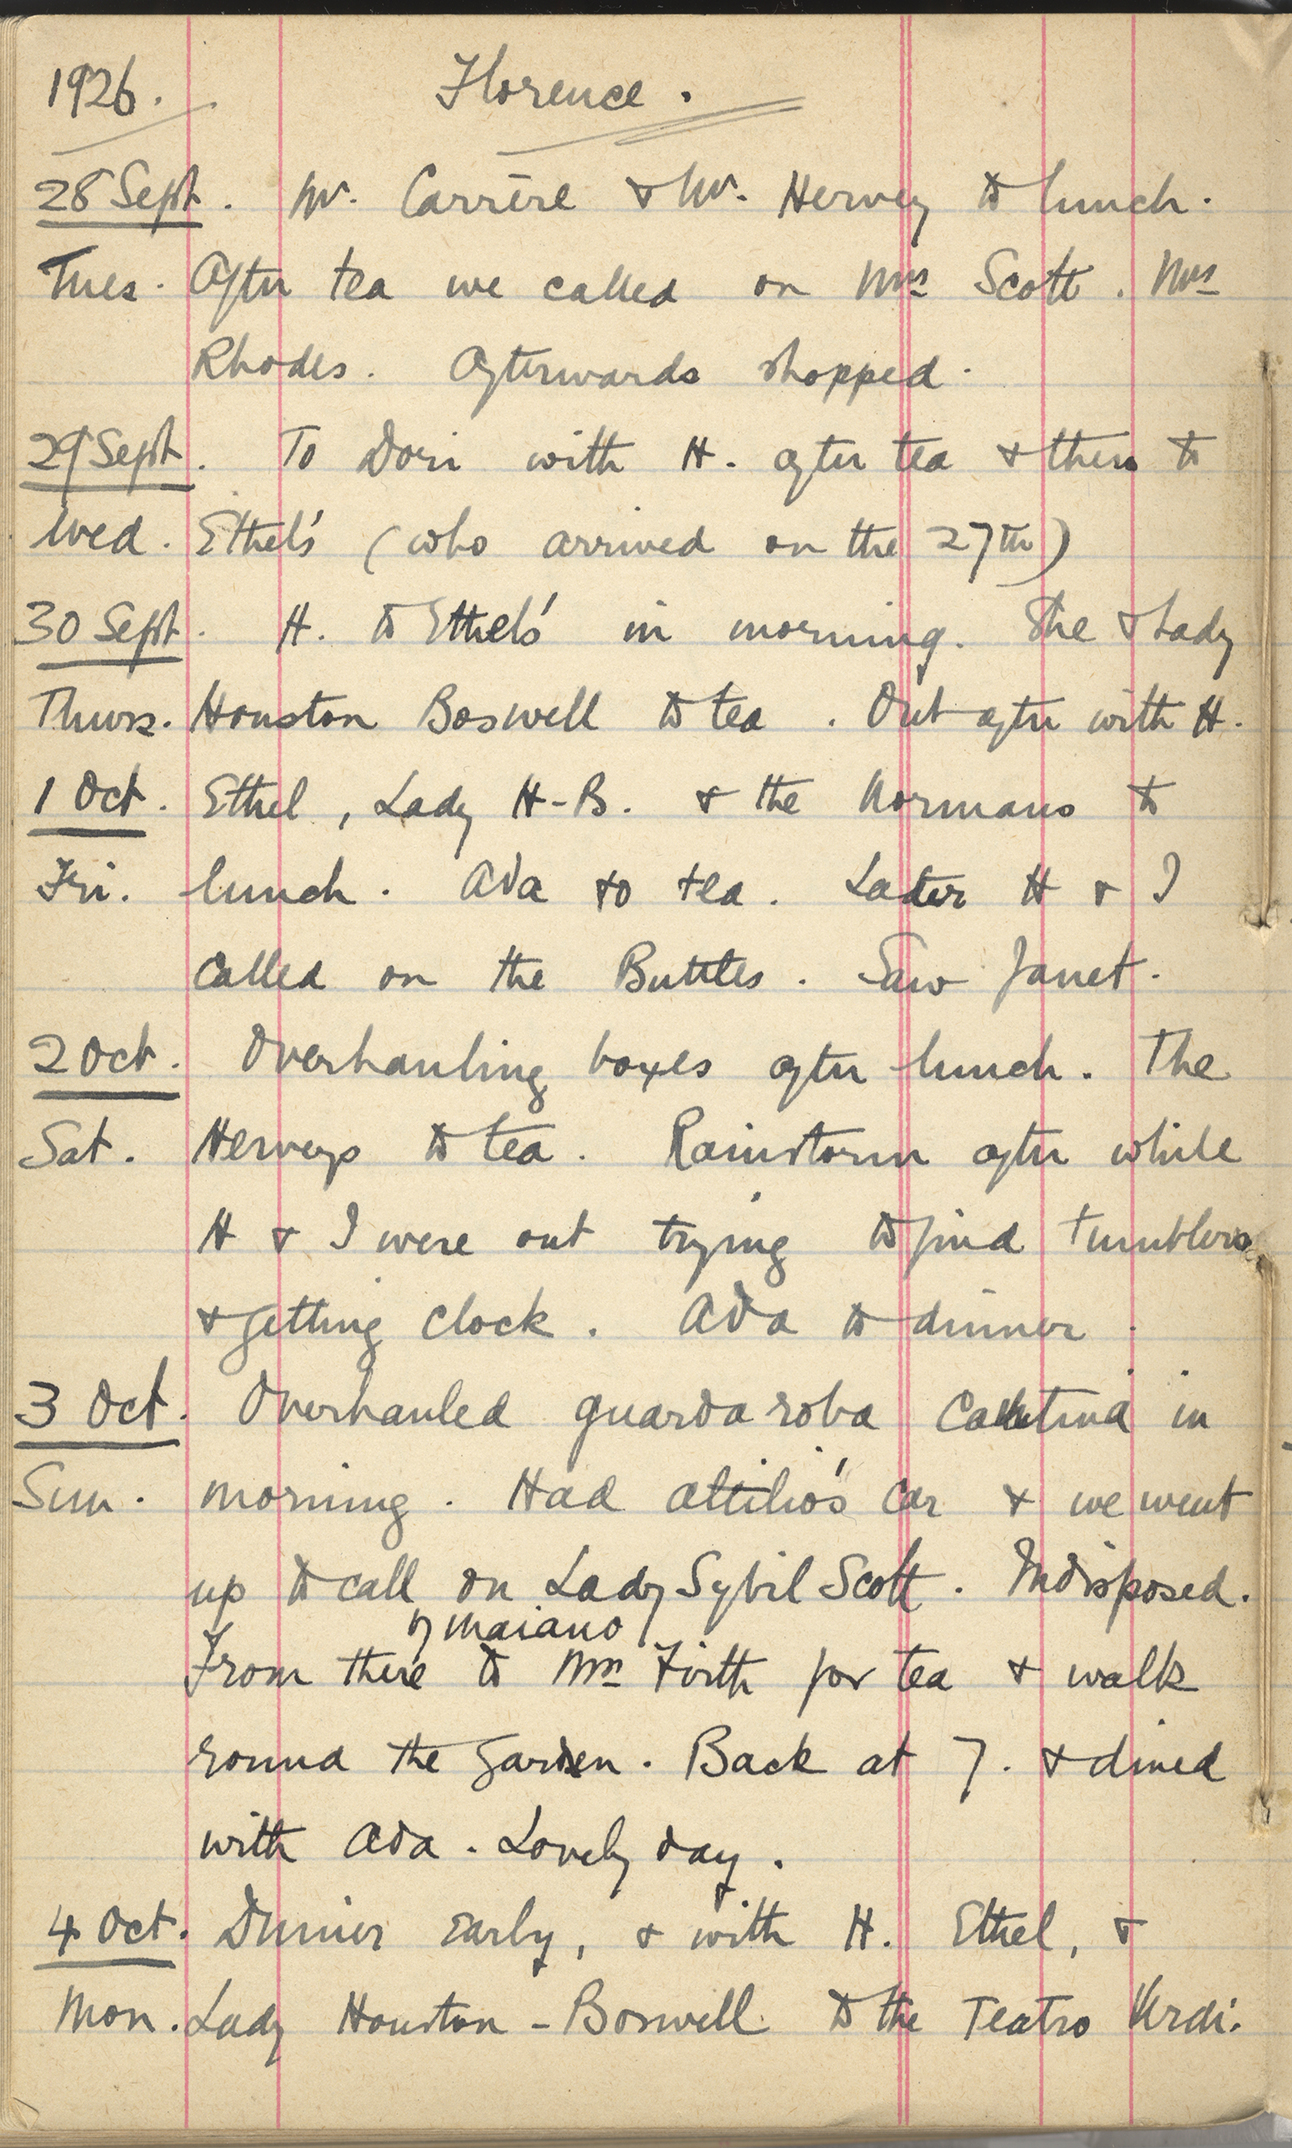 1926. Florence.
28 Sept. Mr. Carrère & Mr. Hervey to lunch.
Tues. After tea we called on Mrs Scott. Mrs
Rhodes. Afterwards shopped.
29 Sept. To Dori with H. after tea & then to
Wed. Ethel's (who arrived on the 27th)
30 Sept. H. to Ethel's in morning. She & Lady
Thurs. Houston Boswell to tea. Out after with H.
1 Oct. Ethel, Lady H-B. & the Normans to
Fri. lunch. Ada to tea. Later H & I
called on the Buttles. Saw Janet.
2 Oct. Overhauling boxes after lunch. The
Sat. Herveys to tea. Rainstorm after while
H & I were out trying to find tumblers
& getting clock. Ada to dinner.
3 Oct. Overhauled guardaroba in
Sun. morning. Had Attilio's car & we went
up to call on Lady Sybil Scott. Indisposed.
of Maiano
From there to Mrs Firth for tea & walk
round the garden. Back at 7. & dined
with Ada. Lovely day.
4 Oct. Dinner early, & with H. Ethel, &
Mon. Lady Houston-Boswell to the Teatro Verdi.